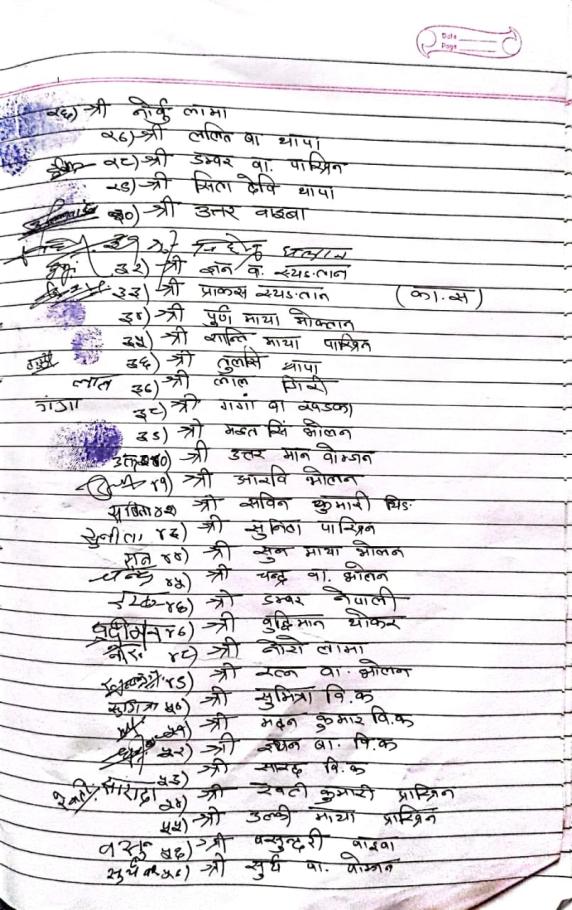 Date
Page
२६) श्री नोर्वु लामा
२७) श्री ललित बा थापा
२८) श्री डम्वर बा. पाख्रिन
२९) श्री सिता देवि थापा
३०) श्री उत्तर वाइबा
३१
३२) श्री ज्ञान ब. स्यङतान
३३) श्री प्रकास स्यङतान (का.स)
३४) श्री पूर्ण माया मोक्तान
३५) श्री शान्ति माया पाख्रिन
३६) श्री तुलसि थापा
लाल ३७) श्री लाल गिरी
गंगा ३८) श्री गंगा बा खडका
३९) श्री भक्त सिं भोलन
४०) श्री उत्तर मान वोम्जन
४१) श्री आरवि भोलन
सबिता ४२) श्री सविन कुमारी थिङ
सुनीता ४३) श्री सुनिता पाख्रिन
सुन ४४) श्री सुन माया भोलन
चन्द्र ४५) श्री चन्द्र बा. भोलन
४६) श्री डम्वर नेपाली
४७) श्री वुद्धिमान थोकर
४८) श्री नोरो लामा
४९) श्री रत्न बा. भोलन
सुमित्रा ५०) श्री सुमित्रा वि.क
५१) श्री मदन कुमार वि.क
५२) श्री बा. वि.क
सारदा ५३) श्री सारदा वि.क
रेवती ५४) श्री रेवती कुमारी पाख्रिन
५५) श्री माया पाख्रिन
वसु ५६) श्री वसुन्दरी वाइवा
सुर्य ५७) श्री सुर्य बा. वोम्जन